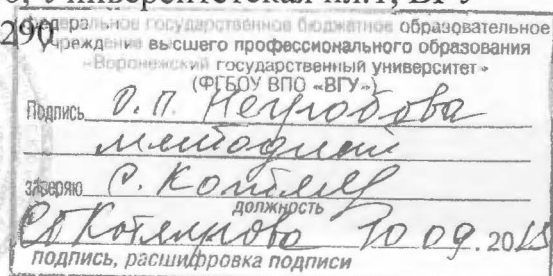 Университетская пл.1, ВГУ
290
Федеральное государственное бюджетное образовательное
учреждение высшего профессионального образования
«Воронежский государственный университет»
(ФГБОУ ВПО «ВГУ»)
Подпись О.П. Негробова
заверяю
должность
10 09. 20
подпись, расшифровка подписи